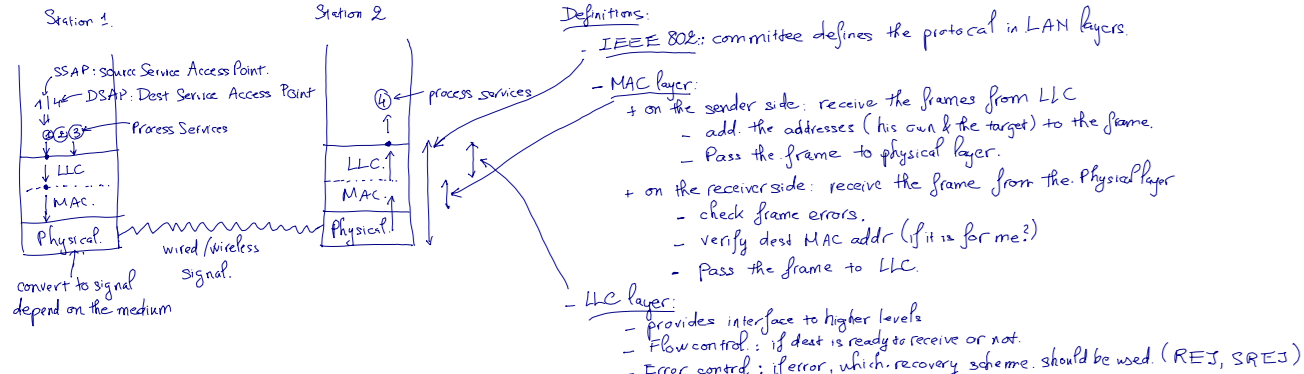 Station 1.
SSAP: source Service Access Point.
1 4
DSAP: Dest Service Access Point
2 3
Process Services
LLC
MAC.
Physical.
convert to signal
depend on the medium
wired/wireless
signal.
Station 2
4 process services
LLC.
MAC.
Physical.
Definitions:
- IEEE 802:: committee defines the protocal in LAN layers.
- MAC layer:
+ on the sender side: receive the frames from LLC
- add. the addresses (his own & the target) to the frame.
- Pass the frame to physical layer.
+ on the receiver side: receive the frame from the Physical layer
- check frame errors.
- verify dest MAC addr (if it is for me?)
- Pass the frame to LLC.
- LLC layer:
- provides interface to higher levels
- Flow control.: if dest is ready to receive or not.
- Error control: if error, which recovery scheme. should be used. (REJ, SREJ)